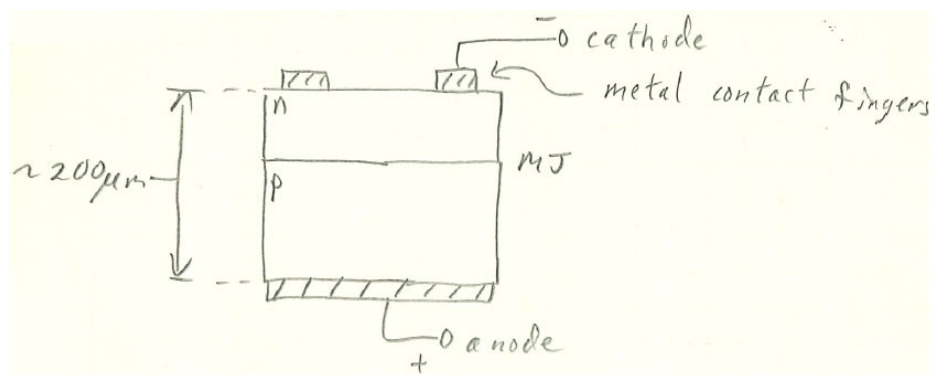 − o cathode
metal contact fingers
n
MJ
~200μm
p
o anode
+